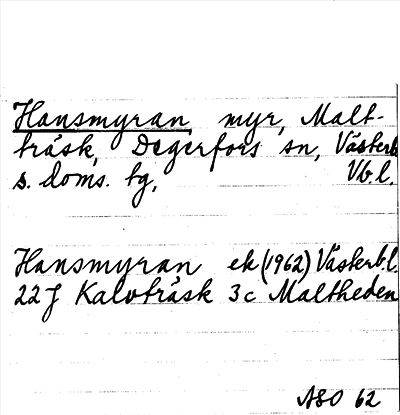 Hansmyran, myr, Malt-
träsk, Degerfors sn, Västerb.
s. doms. tg, Vb.l.
Hansmyran ek (1962) Västerb.l.
22 J Kalvträsk 3 c Maltheden
ASO 62